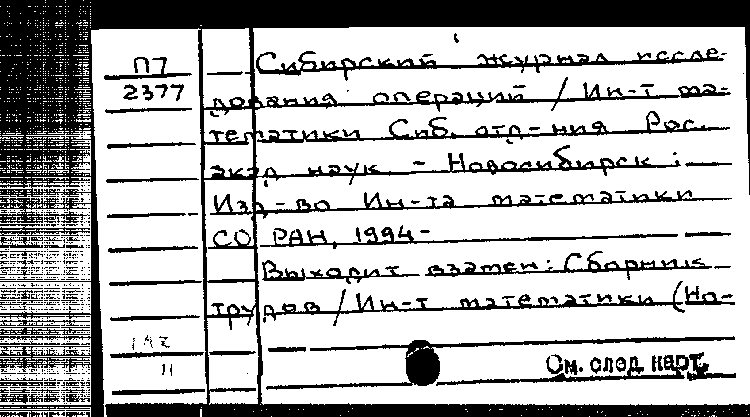 П7
2377
Сибирский журнал иссле-
дования операций / Ин-т ма-
тематики Сиб. отд-ния Рос.
акад наук. - Новосибирск :
Изд-во Ин-та математики
СО РАН, 1994-
Выходит взамен: Сборник
трудов / Ин-т математики (Но-
11
См. след. карт.